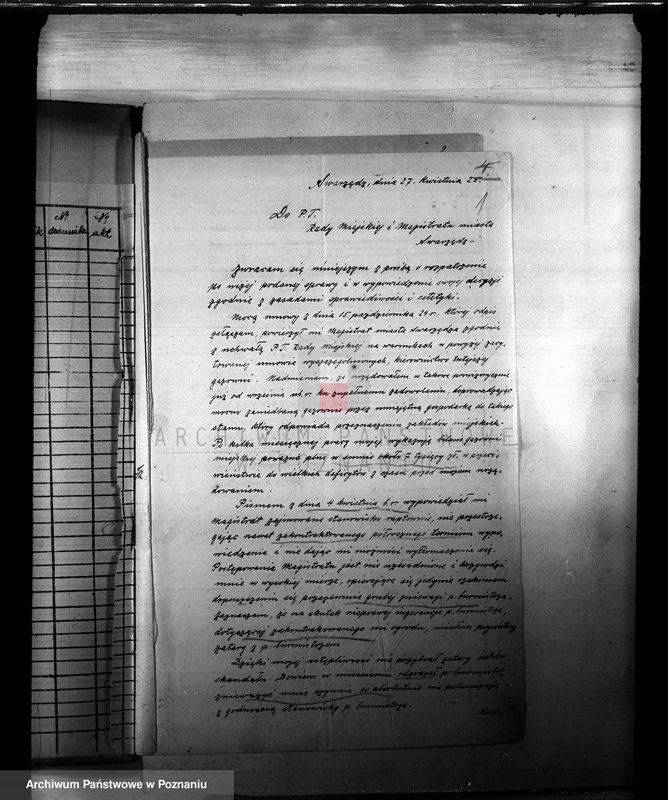 4.
1
Swarzędz, dnia 27. kwietnia 25.
Do P.T.
Rady Miejskiej i Magistratu miasta
Swarzędz.
Zwracam się niniejszym z prośbą o rozpatrzenie
po niżej podanej sprawy i o wypowiedzenie swojej decyzji
zgodnie z zasadami sprawiedliwości i estetyki.
Mocą umowy z dnia 15 października 24 r., którą odpis
załączam, powierzył mi Magistrat miasta Swarzędza zgodnie
z uchwałą P.T. Rady Miejskiej na warunkach w powyżej zacy-
towanej umowie wyszczególnionych, kierownictwo tutejszej
gazowni. Nadmieniam, że urzędowałem w takowej prowizorycznie
już od września ub. r. ku zupełnemu zadowoleniu, doprowadzając
mocno zaniedbaną gazownię przez umiejętną gospodarkę do takiego
stanu, który odpowiada przeznaczeniu zakładów miejskich.
Po kilka miesięcznej pracy mojej wykazuje bilans gazowni
miejskiej poważny plus w sumie około 7 tysięcy zł. w przeci-
wieństwie do wielkich deficytów z czasu przed mojem urzę-
dowaniem.
Pismem z dnia 4 kwietnia b.r. wypowiedział mi
Magistrat zajmowane stanowisko raptownie, nie przestrze-
gając nawet zakontraktowanego półrocznego terminu wypo-
wiedzenia i nie dając mi możności wytłomaczenia się.
Postępowanie Magistratu jest nie uzasadnione i krzywdzi
mnie w wysokiej mierze, opierające się jedynie rzekomem
dopuszczeniu się przezemnie grubej zniewagi p. burmistrza.
Zaznaczam, że na skutek nieprawej ingerencji p. burmistrza,
dotyczącej zakontraktowanego mi ogrodu, miałem prywatny
zatarg z p. burmistrzem
Dzięki mojej ustępliwości nie przybrał zatarg cechów
skandalu. Bowiem w uniesieniu odgrażał p. burmistrz
znieważyć mnie czynnie, co absolutnie nie
z godnością stanowiska p. burmistrza.
Nad.
No
dziennika
No
akt
ARCHIWUM PAŃSTWOWE
W POZNANIU
Archiwum Państwowe w Poznaniu